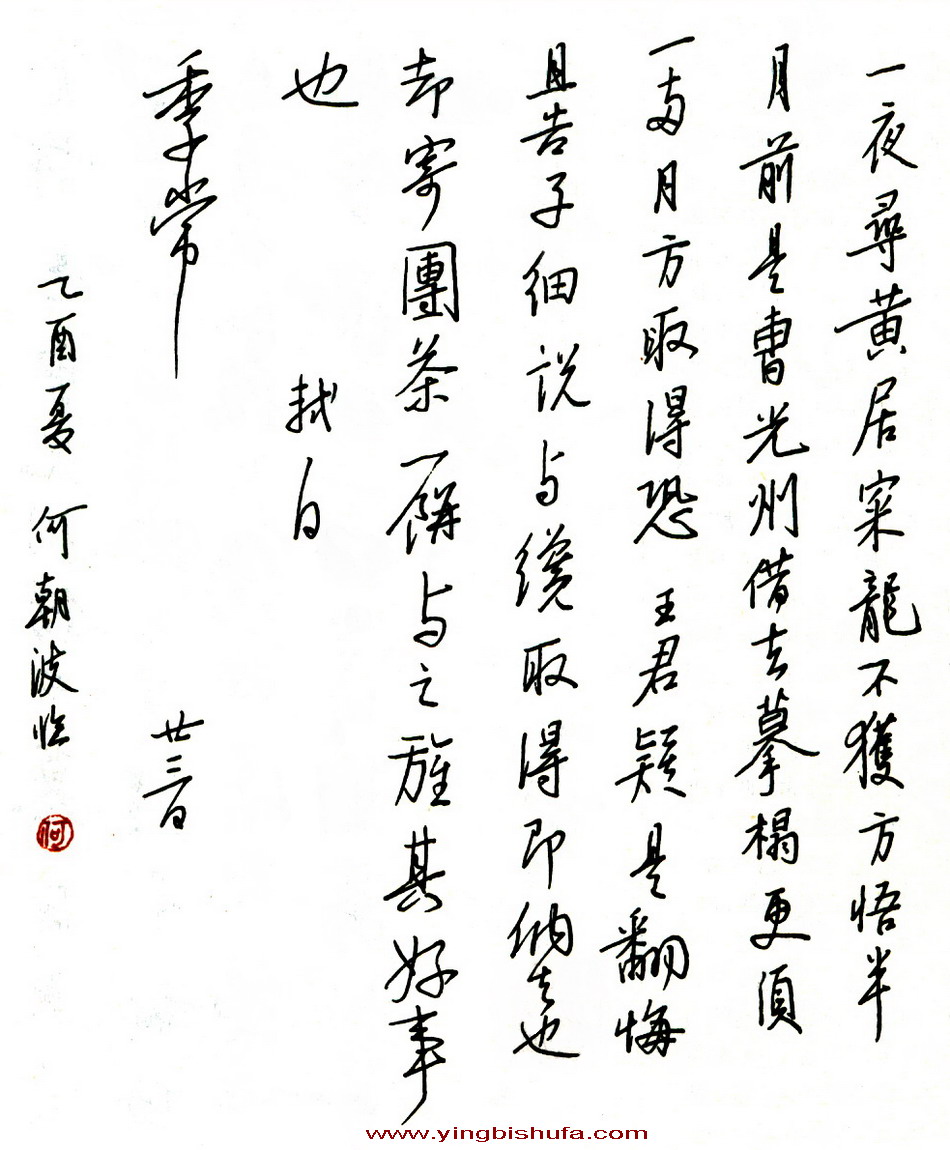 一夜尋黄居寀龍不獲方悟半
月前是曹光州借去摹榻更須
一兩月方取得恐 王君疑是翻悔
且告子細説与纔取得即納去也
却寄團茶一餅与之旌其好事
也 軾白
季常 廿三日
乙酉夏 何朝波临
何
www.yingbishufa.com